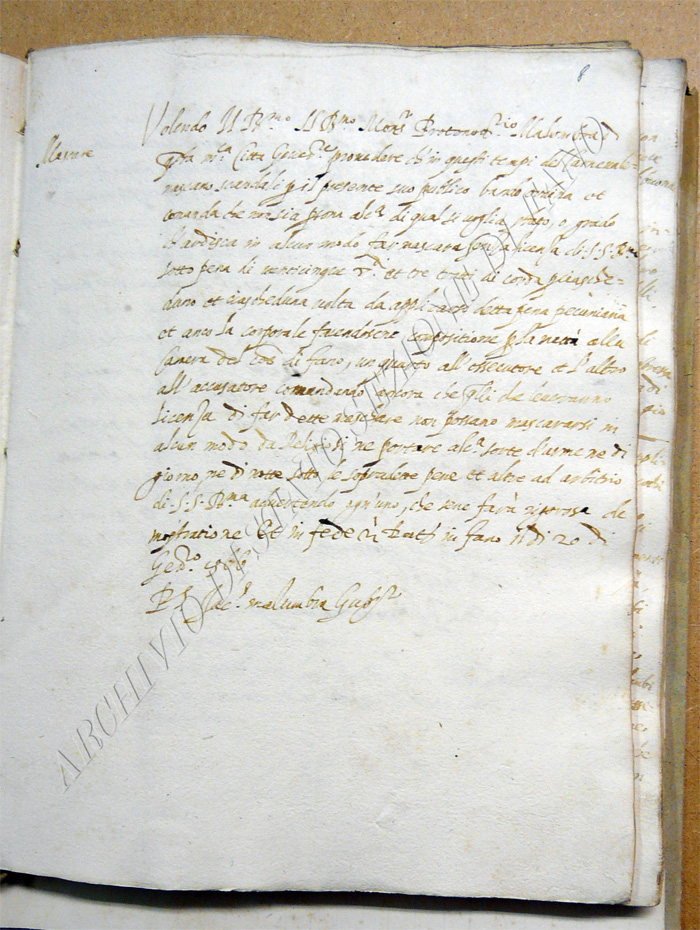 8
Volendo Il R.mo Mons.r Protonot.rio Malumbra di
Mascare
q.sta m.ca Città Gover.re provedere ch'in questi tempi del Carnevale
nascano scandali p il presente suo publico bando ordina et
comanda che non sia p̱sona alc.a di qual si voglia stato, o grado
ch'ardisca in alcun modo far mascara senza licenza di S. S. R.ma
sotto pena di venticinque et tre tratti di corda p ciasche-
duno et ciascheduna volta da applicarsi detta pena pecuniaria
et anco la corporale facendosene compositione p la metà alla
Camera del di fano, un quarto all'essecutore et l'altro
all'accusatore comandando ancora che q̱lli che haveranno
licenza di far dette maschare non possano mascararsi in
alcun modo da Religiosi ne portare alc.a sorte d'arme ne di
giorno, ne di notte sotto le sopradette pene et altre ad arbitrio
di S. S. R.ma avertendo ogn'uno, che sene farà rigorosa de
mostratione Et in fede Dath in fano il dì 20 di
Malumbra Gub.r
ARCHIVIO DI STATO SEZIONE DI FANO